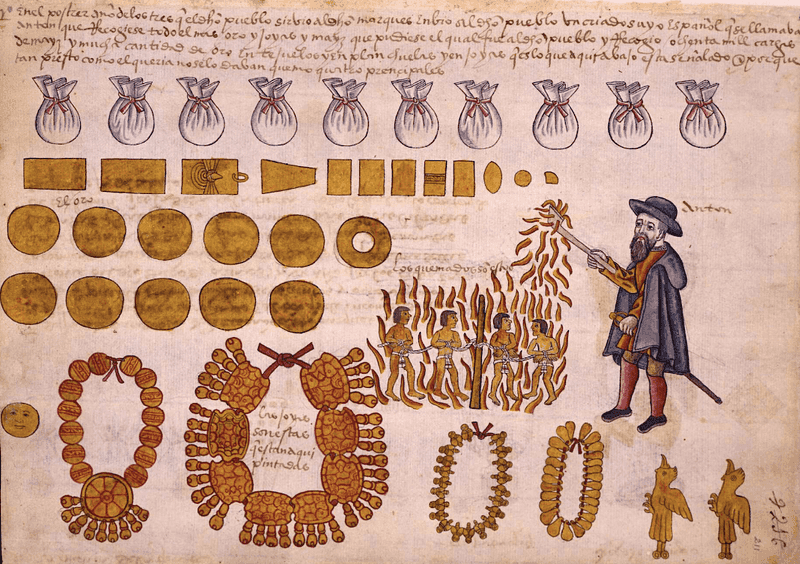 Enel postrer año delostres q̃ el dh̃o pueblo sirbio al dh̃o marques Enbio al dh̃o pueblo un criado suyo Español q̃ se llamaba
Anton que Recogiese todo el mas oro y Joyas y mayz que pudiese el qual fue al dh̃o pueblo y Recogio ochenta mill cargas
de mayz y mucha cantidad de oro en tejuelos y en planchuelas y en Joyas q̃ es lo que aqui abajo esta señalado y porque
tan presto como el queria no se lo daban quemo quatro prencipales
El oro
anton
los quemados sō estos
las joyas
son estas
q̃ estan aqui
pintadas